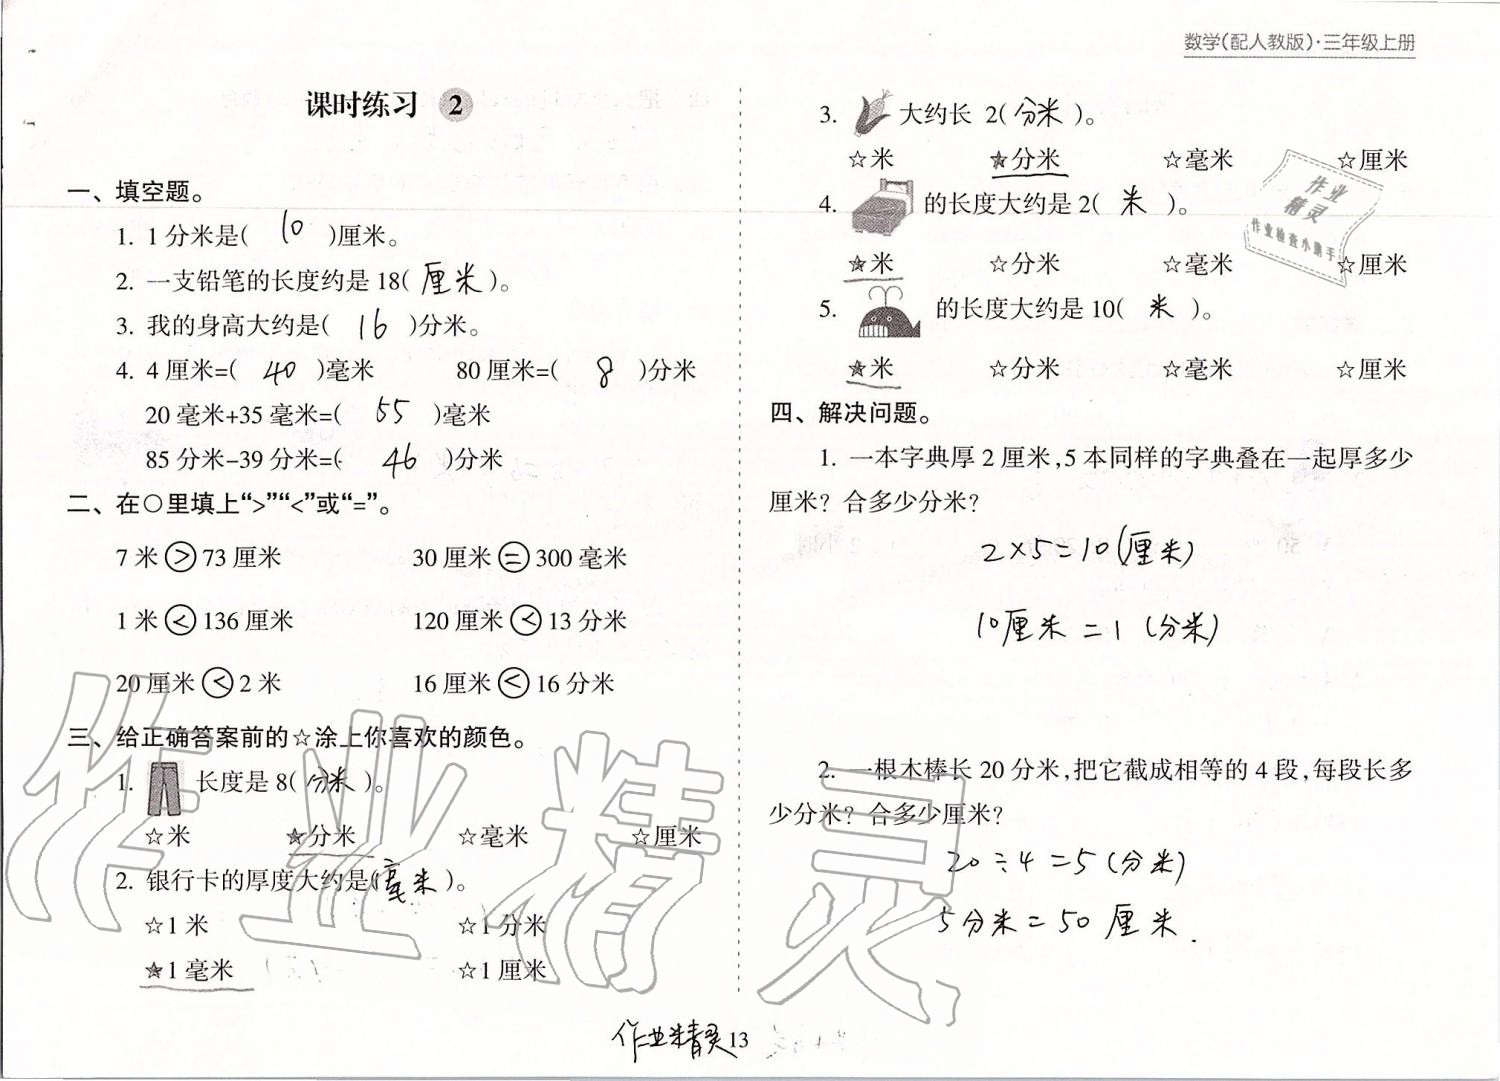 数学(配人教版)·三年级上册
课时练习 2
一、填空题。
1. 1分米是( 10 )厘米。
2. 一支铅笔的长度约是18( 厘米 )。
3. 我的身高大约是( 16 )分米。
4. 4厘米=( 40 )毫米 80厘米=( 8 )分米
20毫米+35毫米=( 55 )毫米
85分米-39分米=( 46 )分米
二、在○里填上“>”“<”或“=”。
7米 > 73厘米 30厘米 = 300毫米
1米 < 136厘米 120厘米 < 13分米
20厘米 < 2米 16厘米 < 16分米
三、给正确答案前的☆涂上你喜欢的颜色。
1. 长度是8( 分米 )。
☆米 ★分米 ☆毫米 ☆厘米
2. 银行卡的厚度大约是( 毫米 )。
☆1米 ☆1分米
★1毫米 ☆1厘米
3. 大约长 2( 分米 )。
☆米 ★分米 ☆毫米 ☆厘米
4. 的长度大约是2( 米 )。
★米 ☆分米 ☆毫米 ☆厘米
5. 的长度大约是10( 米 )。
★米 ☆分米 ☆毫米 ☆厘米
四、解决问题。
1. 一本字典厚2厘米,5本同样的字典叠在一起厚多少
厘米? 合多少分米?
2×5=10(厘米)
10厘米=1(分米)
2. 一根木棒长20分米,把它截成相等的4段,每段长多
少分米? 合多少厘米?
20÷4=5(分米)
5分米=50厘米.
作业精灵
13
作业
精灵
作业检查小助手
作业精灵